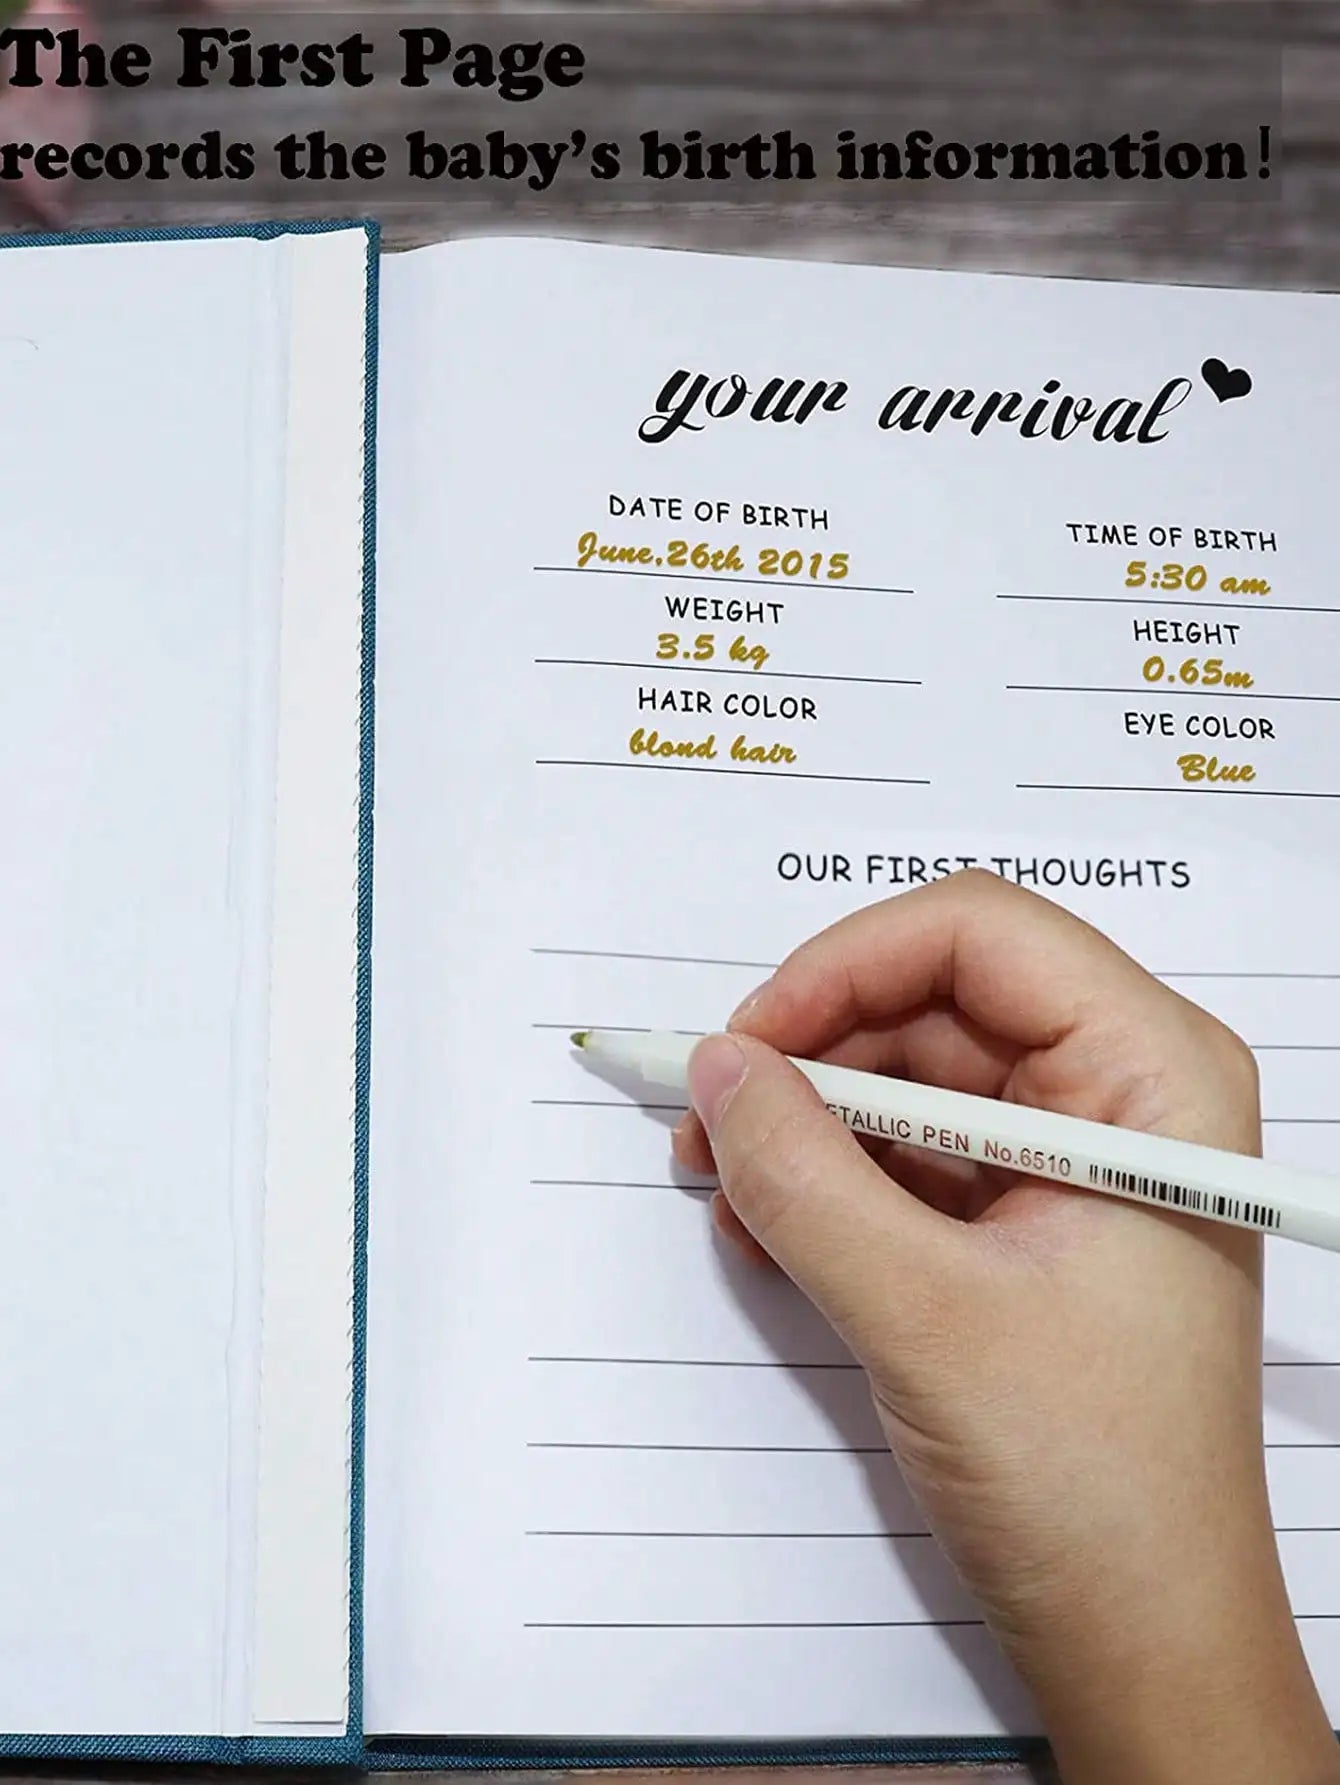 The First Page
records the baby's birth information!
your arrival
DATE OF BIRTH
June.26th 2015
TIME OF BIRTH
5:30 am
WEIGHT
3.5 kg
HEIGHT
0.65m
HAIR COLOR
blond hair
EYE COLOR
Blue
OUR FIRST THOUGHTS
METALLIC PEN No.6510